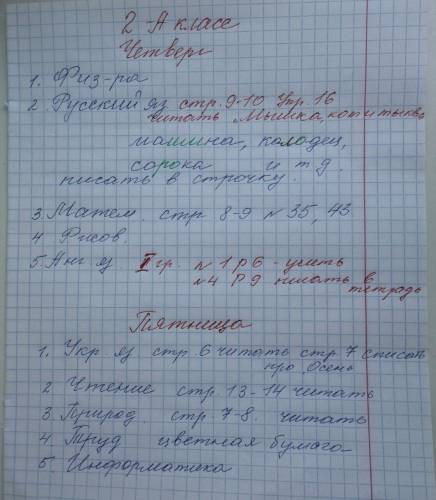 2-А класс
Четверг
1. Физ-ра
2 Русский яз стр. 9-10 Упр. 16
читать „Мышка, кот и тыква
машина, колодец,
сорока и т д.
писать в строчку.
3 Матем. стр 8-9 № 35, 43
4 Рисов.
5. Анг яз. I гр. № 1 Р 6 - учить
№4 Р 9 писать в
тетрадь
Пятница
1. Укр яз стр. 6 читать стр. 7 списать
про Осень
2 Чтение стр. 13-14 читать
3 Природ. стр. 7-8. читать
4 Труд цветная бумага
5. Информатика